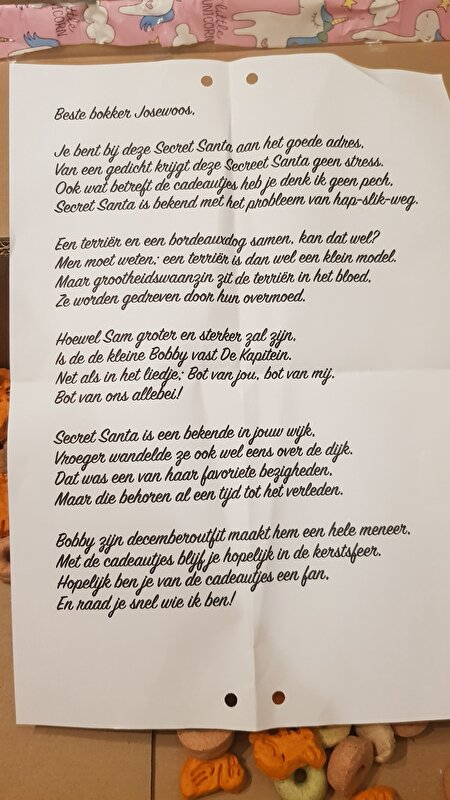 little UNICORN
little UNICORN
Beste bokker Josewoos,
Je bent bij deze Secret Santa aan het goede adres,
Van een gedicht krijgt deze Secreet Santa geen stress.
Ook wat betreft de cadeautjes heb je denk ik geen pech,
Secret Santa is bekend met het probleem van hap-slik-weg.
Een terriër en een bordeauxdog samen, kan dat wel?
Men moet weten; een terriër is dan wel een klein model.
Maar grootheidswaanzin zit de terriër in het bloed,
Ze worden gedreven door hun overmoed.
Hoewel Sam groter en sterker zal zijn,
Is de de kleine Bobby vast De Kapitein.
Net als in het liedje; Bot van jou, bot van mij,
Bot van ons allebei!
Secret Santa is een bekende in jouw wijk,
Vroeger wandelde ze ook wel eens over de dijk.
Dat was een van haar favoriete bezigheden,
Maar die behoren al een tijd tot het verleden.
Bobby zijn decemberoutfit maakt hem een hele meneer,
Met de cadeautjes blijf je hopelijk in de kerstsfeer.
Hopelijk ben je van de cadeautjes een fan,
En raad je snel wie ik ben!